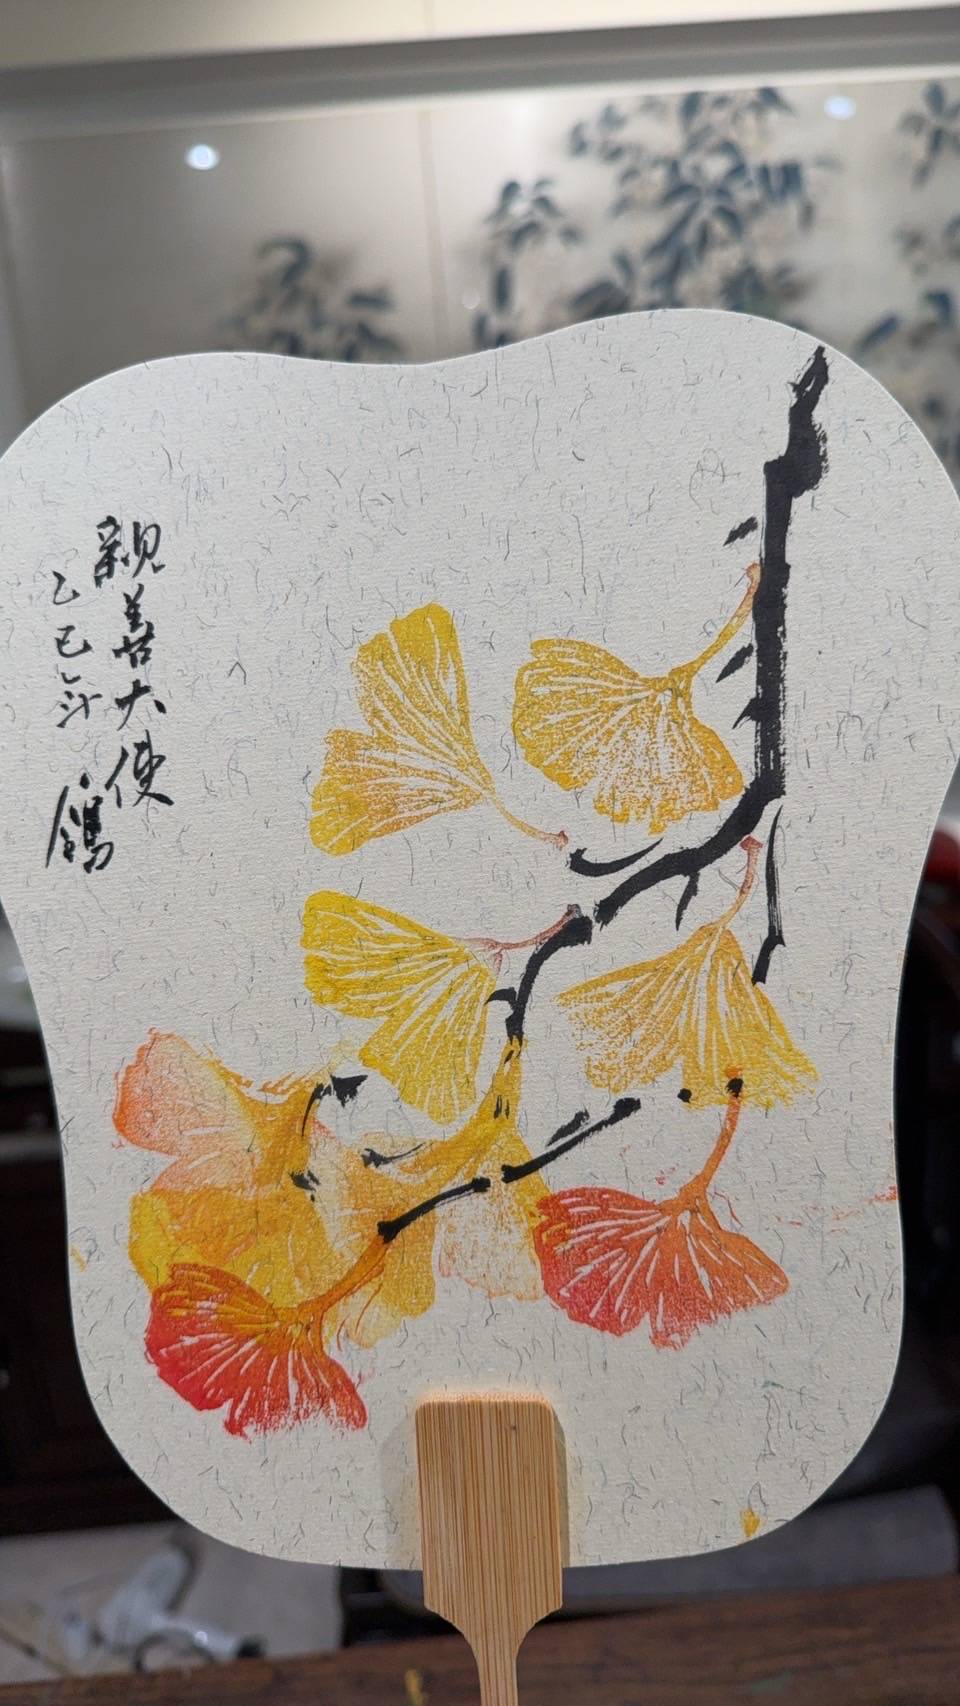 親善大使
乙巳年